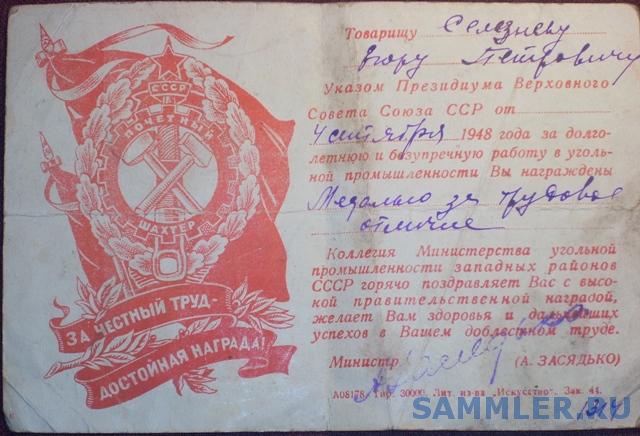 СССР
ПОЧЕТНЫЙ
ШАХТЕР
ЗА ЧЕСТНЫЙ ТРУД-
ДОСТОЙНАЯ НАГРАДА!
Товарищу Селезневу
Егору Петровичу
Указом Президиума Верховного
Совета Союза ССР от
4 сентября 1948 года за долго-
летнюю и безупречную работу в уголь-
ной промышленности Вы награждены
Медалью за трудовое
отличие
Коллегия Министерства угольной
промышленности западных районов
СССР горячо поздравляет Вас с высо-
кой правительственной наградой,
желает Вам здоровья и дальнейших
успехов в Вашем доблестном труде.
Министр (А. ЗАСЯДЬКО)
А08178. Тир. 30000. Лит. из-ва „Искусство". Зак. 44.
SAMMLER.RU